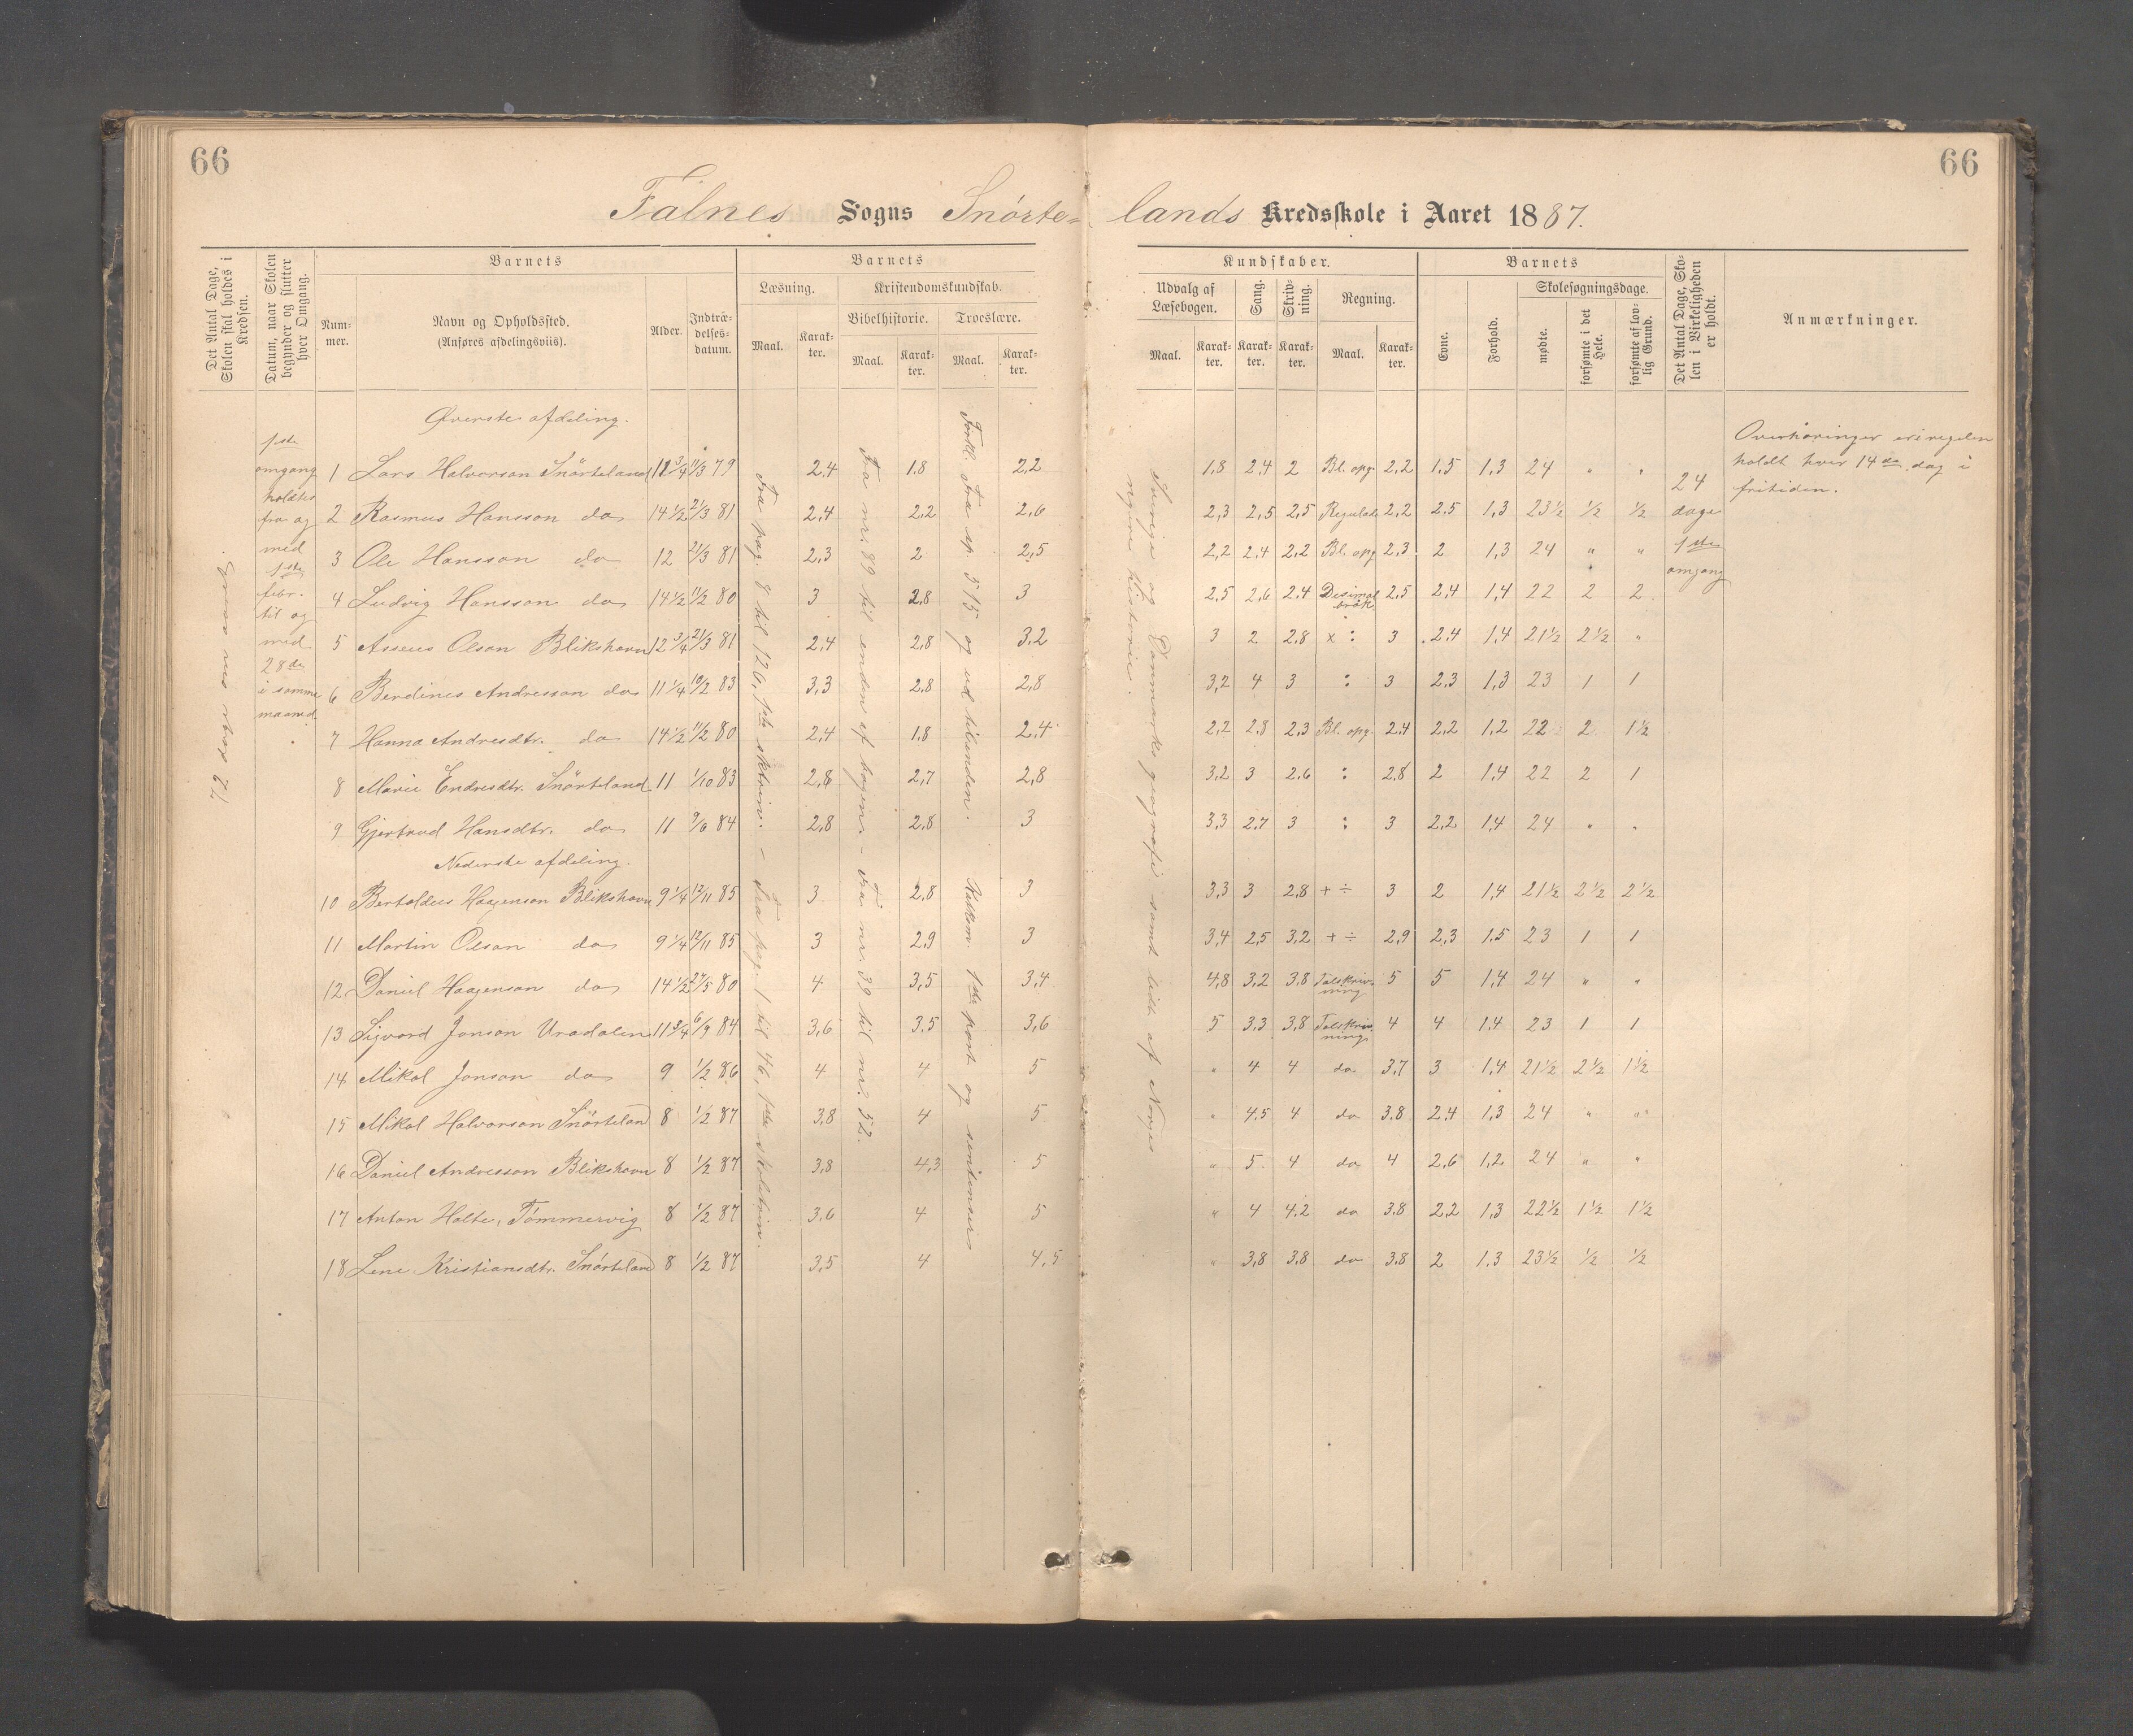 66
66
Falnes Sogns Snörte= lands Kredsskole i Aaret 1887.
Det Antal Dage, Skolen skal holdes i Kredsen.
Datum, naar Skolen begynder og slutter hver Omgang.
Barnets
Num- mer.
Navn og Opholdssted. (Anføres afdelingsviis).
Alder.
Indtræ- delses- datum.
Barnets
Læsning.
Maal.
Karak- ter.
Kristendomskundskab.
Bibelhistorie.
Maal.
Karak- ter.
Troeslære.
Maal.
Karak- ter.
Kundskaber.
Udvalg af Læsebogen.
Maal.
Karak- ter.
Sang.
Karak- ter.
Skriv- ning.
Karak- ter.
Regning.
Maal.
Karak- ter.
Barnets
Evne.
Forhold.
Skolesøgningsdage.
mødte.
forsømte i det Hele.
forsømte af lov- lig Grund.
Det Antal Dage, Sko- len i Virkeligheden er holdt.
Anmærkninger.
1ste
omgang
holdtes
fra og
med
1ste
febr.
til og
med
28de
i samme
maaned.
Øverste afdeling.
1 Lars Halvorson Snörteland 12 3/4 11/3 79 2,4 1,8 2,2 1,8 2,4 2 Bl. opg. 2,2 1,5 1,3 24 " "
2 Rasmus Hansson do 14 1/2 21/3 81 2,4 2,2 2,6 2,3 2,5 2,5 2,2 2,5 1,3 23 1/2 1/2 1/2
3 Ole Hansson do 12 21/3 81 2,3 2 2,5 2,2 2,4 2,2 Bl. opg 2,3 2 1,3 24 " "
4 Ludvig Hansson do 14 1/2 11/2 80 3 2,8 3 2,5 2,6 2,4 Desimal brök 2,5 2,4 1,4 22 2 2
5 Asseus Olson Blikshavn 12 3/4 21/3 81 2,4 2,8 3,2 3 2 2,8 x : 3 2,4 1,4 21 1/2 2 1/2 "
6 Berdines Andresson do 11 1/4 10/2 83 3,3 2,8 2,8 3,2 4 3 : 3 2,3 1,3 23 1 1
7 Hanna Andresdtr. do 14 1/2 11/2 80 2,4 1,8 2,4 2,2 2,8 2,3 Bl. opg. 2,4 2,2 1,2 22 2 1 1/2
8 Marie Endresdtr. Snörteland 11 1/10 83 2,8 2,7 2,8 3,2 3 2,6 : 2,8 2 1,4 22 2 1
9 Gjertrud Hansdtr. do 11 84 2,8 2,8 3 3,3 2,7 3 : 3 2,2 1,4 24 " "
Nederste afdeling.
10 Bertoldus Haagenson Blikshavn 9 1/4 12/11 85 3 2,8 3 3,3 3 2,8 + ÷ 3 2 1,4 21 1/2 2 1/2 2 1/2
11 Martin Olson do 9 1/4 12/11 85 3 2,9 3 3,4 2,5 3,2 + ÷ 2,9 2,3 1,5 23 1 1
12 Daniel Haagenson do 14 1/2 27/5 80 4 3,5 3,4 4,8 3,2 3,8 Talskriv- ning 5 5 1,4 24 " "
13 Sigvard Jonson Uradalen 11 3/4 6/9 84 3,6 3,5 3,6 5 3,3 3,8 Talskriv- ning 4 4 1,4 23 1 1
14 Mikal Jonson do 9 1/2 86 4 4 5 " 4 4 do 3,7 3 1,4 21 1/2 2 1/2 1 1/2
15 Mikal Halvorson Snörteland 8 1/2 87 3,8 4 5 " 4,5 4 do 3,8 2,4 1,3 24 " "
16 Daniel Andresson Blikshavn 8 1/2 87 3,8 4,3 5 " 5 4 do 4 2,6 1,2 24 " "
17 Anton Holte, Tömmervig 8 1/2 87 3,6 4 5 " 4 4,2 do 3,8 2,2 1,3 22 1/2 1 1/2 1 1/2
18 Lene Kristiansdtr. Snörteland 8 1/2 87 3,5 4 4,5 " 3,8 3,8 do 3,8 2 1,3 23 1/2 1/2 1/2
Fra pag. 8 til 126, 1ste
Fra pag. 1 til 46, 1ste
Fra nr. 89 til enden af bogen. – Fra nr. 39 til nr. 52.
Forkl. Fra sp. 515 og ud tilenden.
1ste part og
Sverige og Danmarks geografi samt lidt af Norges
historie.
24
dage
1ste
omgang
Overhöringer er i regelen
holdt hver 14de dag i
fritiden.